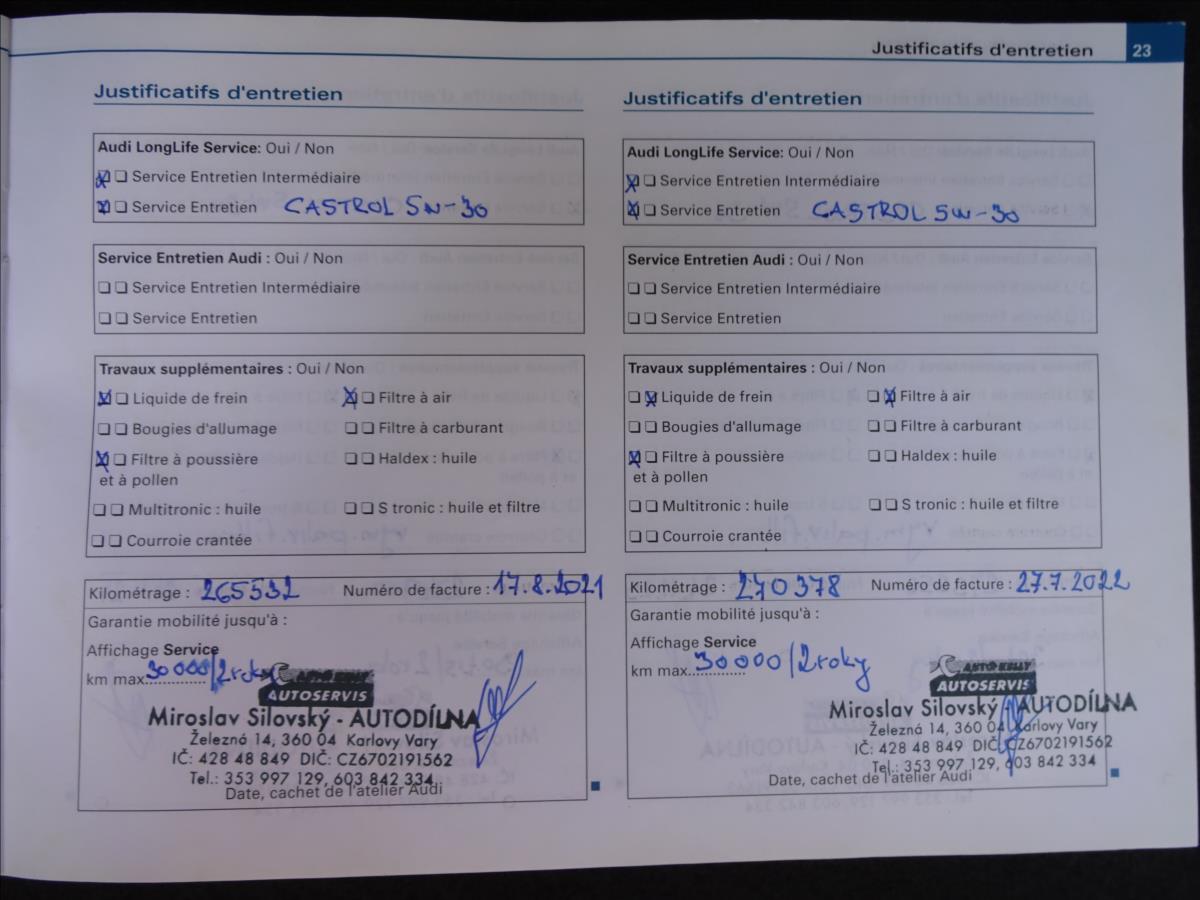 Justificatifs d'entretien 23
Justificatifs d'entretien
Audi LongLife Service: Oui / Non
Service Entretien Intermédiaire
Service Entretien CASTROL 5W-30
Service Entretien Audi : Oui / Non
Service Entretien Intermédiaire
Service Entretien
Travaux supplémentaires : Oui / Non
Liquide de frein Filtre à air
Bougies d'allumage Filtre à carburant
Filtre à poussière Haldex : huile
et à pollen
Multitronic : huile S tronic : huile et filtre
Courroie crantée
Kilométrage : 265532 Numéro de facture : 17.8.2021
Garantie mobilité jusqu'à :
Affichage Service
km max. 30000/2roky
AUTO KELLY
AUTOSERVIS
Miroslav Silovský - AUTODÍLNA
Železná 14, 360 04 Karlovy Vary
IČ: 428 48 849 DIČ: CZ6702191562
Tel.: 353 997 129, 603 842 334
Date, cachet de l'atelier Audi
Justificatifs d'entretien
Audi LongLife Service: Oui / Non
Service Entretien Intermédiaire
Service Entretien CASTROL 5W-30
Service Entretien Audi : Oui / Non
Service Entretien Intermédiaire
Service Entretien
Travaux supplémentaires : Oui / Non
Liquide de frein Filtre à air
Bougies d'allumage Filtre à carburant
Filtre à poussière Haldex : huile
et à pollen
Multitronic : huile S tronic : huile et filtre
Courroie crantée
Kilométrage : 270378 Numéro de facture : 27.7.2022
Garantie mobilité jusqu'à :
Affichage Service
km max. 30000/2roky
AUTO KELLY
AUTOSERVIS
Miroslav Silovský - AUTODÍLNA
Železná 14, 360 04 Karlovy Vary
IČ: 428 48 849 DIČ: CZ6702191562
Tel.: 353 997 129, 603 842 334
Date, cachet de l'atelier Audi